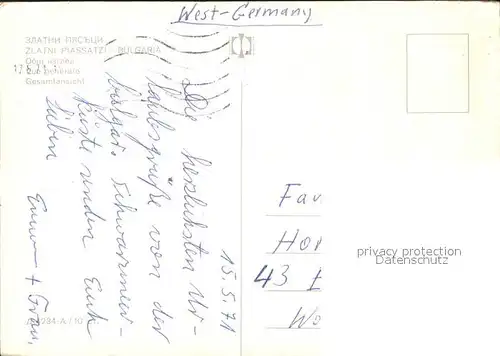 West-Germany
ЗЛАТНИ ПЯСЪЦИ
ZLATNI PIASSATZI - BULGARIA
Общ изглед
Vue générale
Gesamtansicht
15.5.71
Die herzlichsten Ur-
laubsgrüße von der
bulgar. Schwarzmeer-
küste senden Euch
Lieben
+ Frau.
Fa
Ho
43
W
privacy protection
Datenschutz